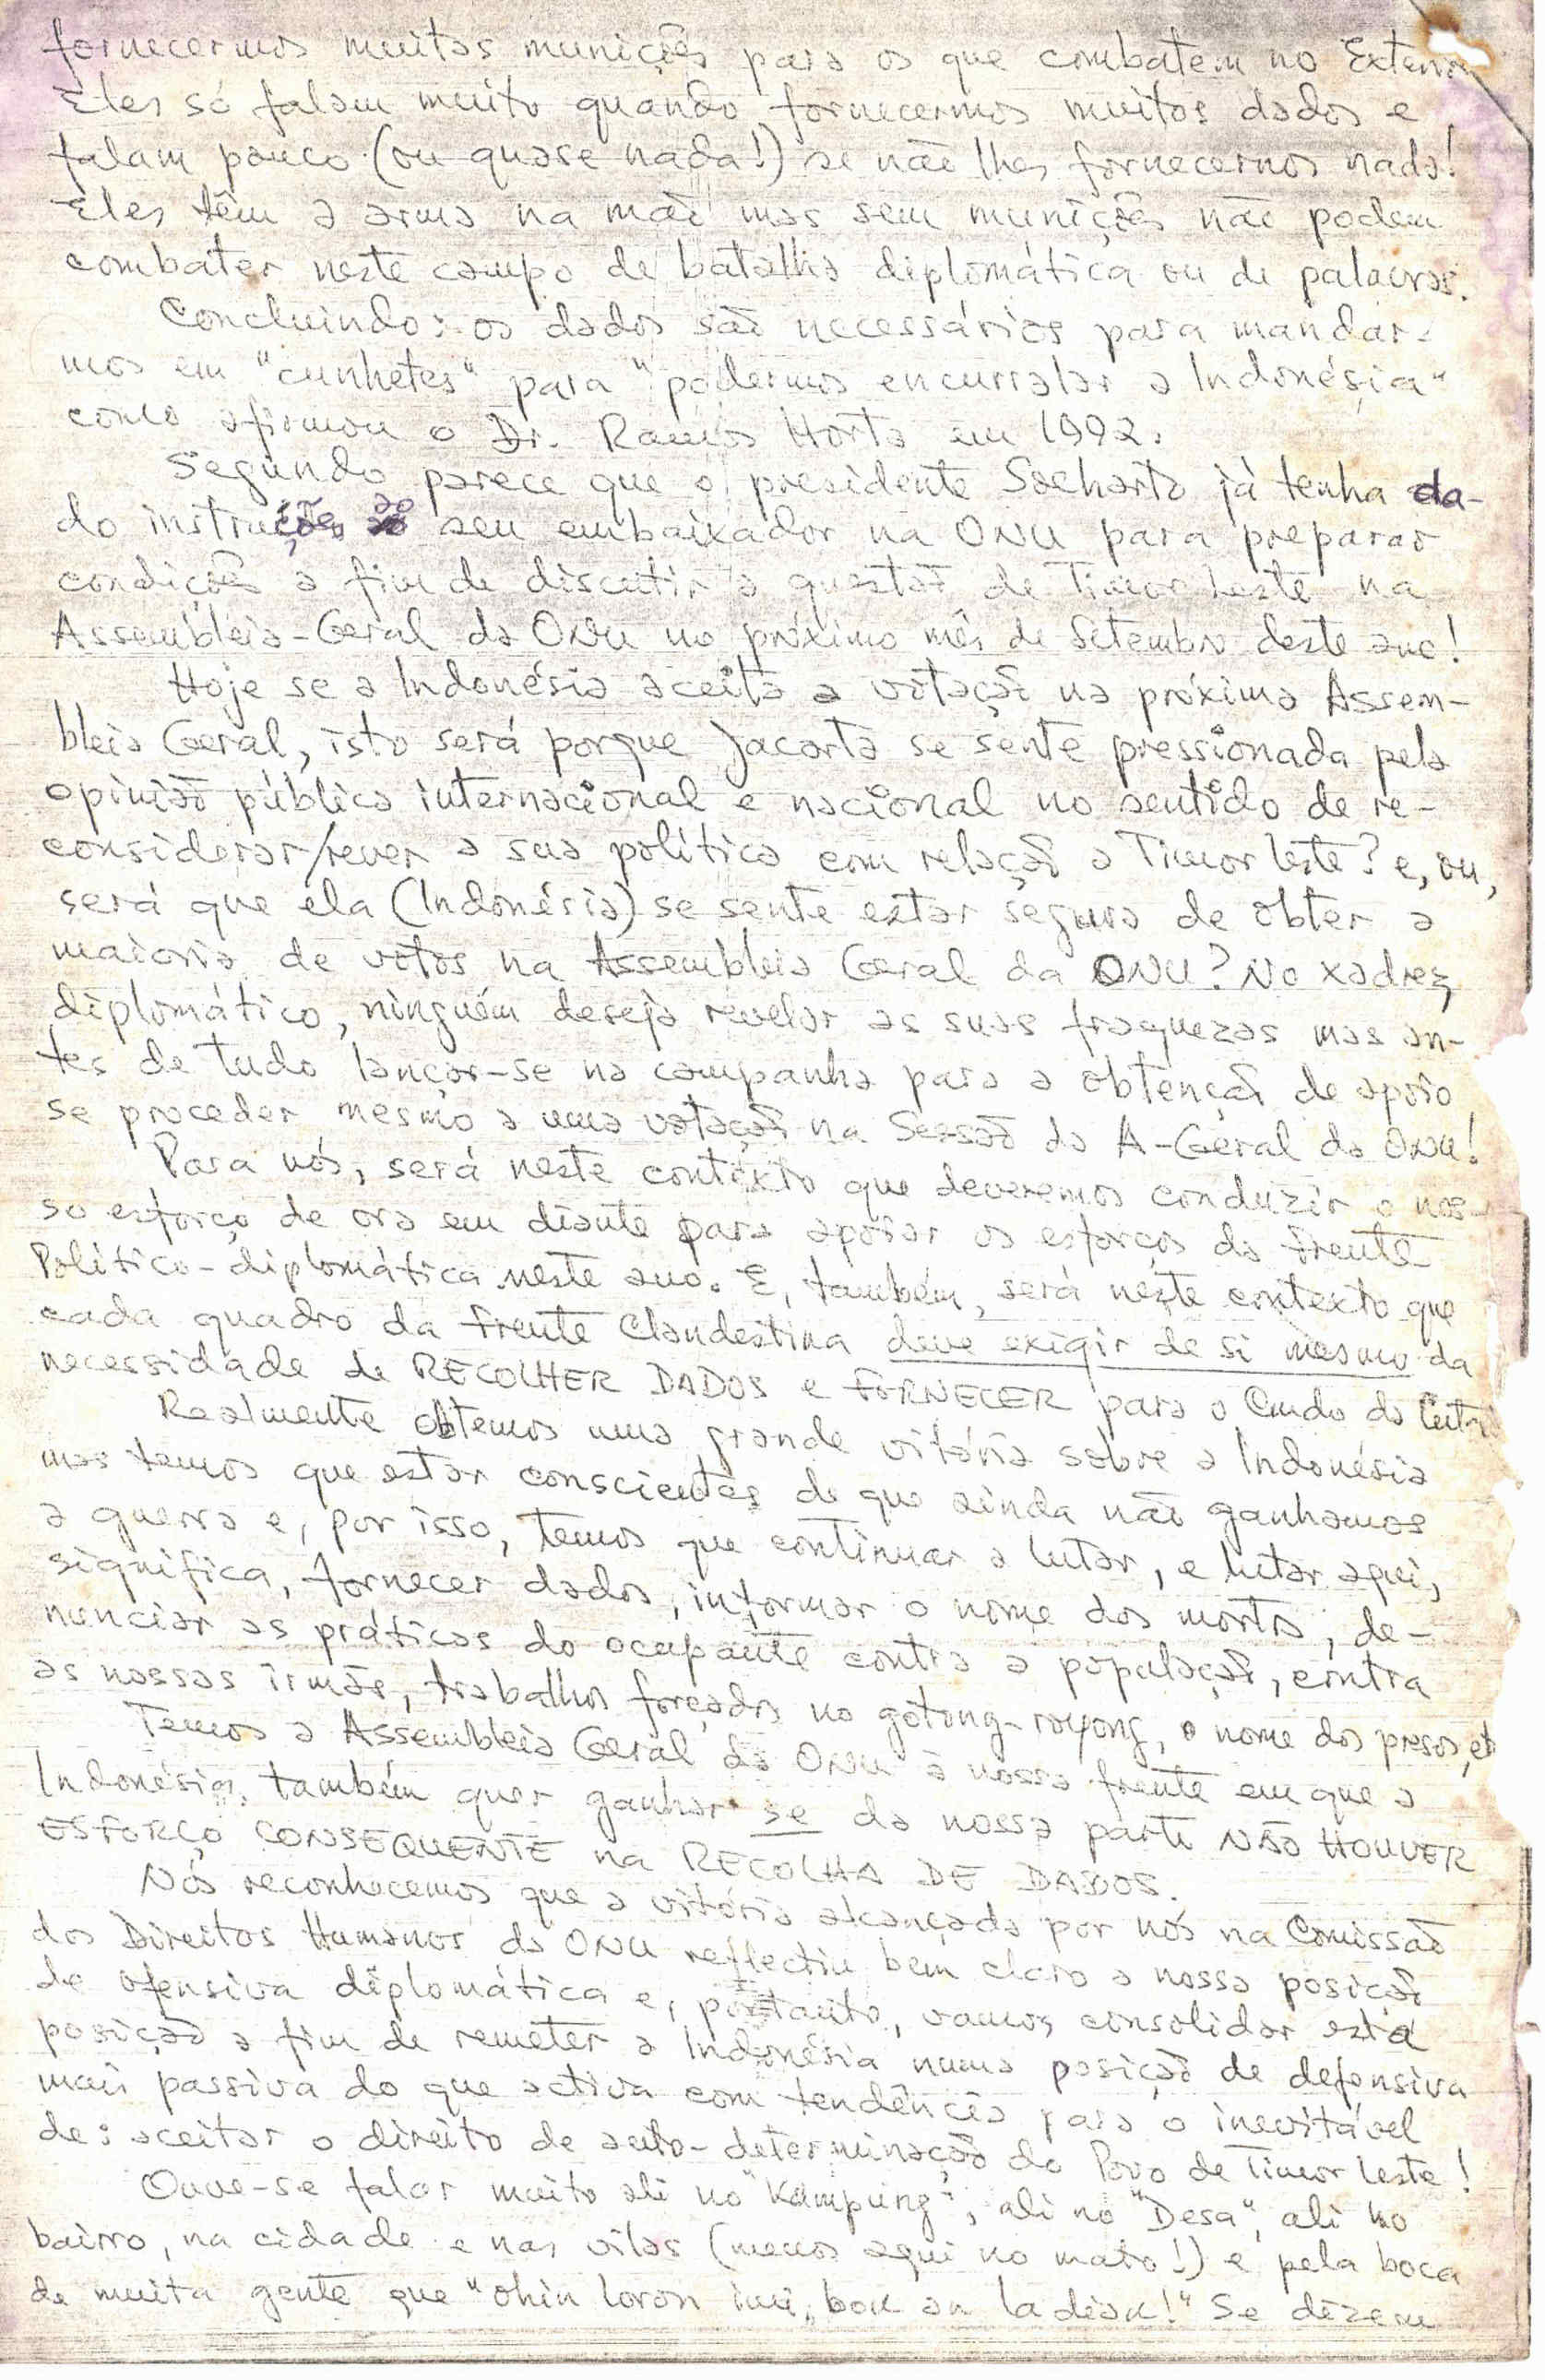 fornecermos muitas munições para os que combatem no Exterior
Eles só falam muito quando fornecermos muitos dados e
falam pouco (ou quase nada!) se não lhes fornecermos nada!
Eles têm a arma na mão mas sem munições não podem
combater neste campo de batalha diplomática ou de palavras.
Concluindo: os dados são necessários para mandar-
mos em "cunhetes" para "podermos encurralar a Indonésia"
como afirmou o Dr. Ramos Horta em 1992.
Segundo parece que o presidente Soeharto já tenha da-
do instruções ao seu embaixador na ONU para preparar
condições a fim de discutir a questão de Timor Leste na
Assembleia-Geral da ONU no próximo mês de Setembro deste ano!
Hoje se a Indonésia aceita a votação na próxima Assem-
bleia Geral, isto será porque Jacarta se sente pressionada pela
opinião pública internacional e nacional no sentido de re-
considerar/rever a sua política com relação a Timor Leste? e, ou,
será que ela (Indonésia) se sente estar segura de obter a
maioria de votos na Assembleia Geral da ONU? No xadrez
diplomático, ninguém deseja revelar as suas fraquezas mas an-
tes de tudo lançar-se na campanha para a obtenção de apoio
se proceder mesmo a uma votação na Sessão da A-Geral da ONU!
Para nós, será neste contexto que deveremos conduzir o nos-
so esforço de ora em diante para apoiar os esforços da frente
Político-diplomática neste ano. E, também, será neste contexto que
cada quadro da frente Clandestina deve exigir de si mesmo da
necessidade de RECOLHER DADOS e FORNECER para o Cmdo da Luta
Realmente obtemos uma grande vitória sobre a Indonésia
mas temos que estar conscientes de que ainda não ganhamos
a guerra e, por isso, temos que continuar a lutar, e lutar aqui,
significa, fornecer dados, informar o nome dos mortos, de-
nunciar as práticas do ocupante contra a população, contra
as nossas irmãs, trabalhos forçados no gotong-royong, o nome dos presos, etc
Temos a Assembleia Geral da ONU à nossa frente em que a
Indonésia, também quer ganhar se da nossa parte NÃO HOUVER
ESFORÇO CONSEQUENTE na RECOLHA DE DADOS.
Nós reconhecemos que a vitória alcançada por nós na Comissão
dos Direitos Humanos da ONU reflectiu bem claro a nossa posição
de ofensiva diplomática e, portanto, vamos consolidar esta
posição a fim de remeter a Indonésia numa posição de defensiva
mais passiva do que activa com tendência para o inevitável
de: aceitar o direito de auto-determinação do Povo de Timor Leste!
Ouve-se falar muito ali no "Kampung", ali no "Desa", ali no
bairro, na cidade e nas vilas (menos aqui no mato!) e pela boca
de muita gente que "ohin loron ini, bok an la diak!" Se dizem